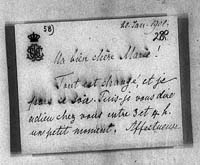 58
21 Jan. 1901.
288
Ma bien chère Marie!
Tout est changé, et je
pars ce soir. Puis-je vous dire
adieu chez vous entre 3 et 4 h.
un petit moment. Affectueuse